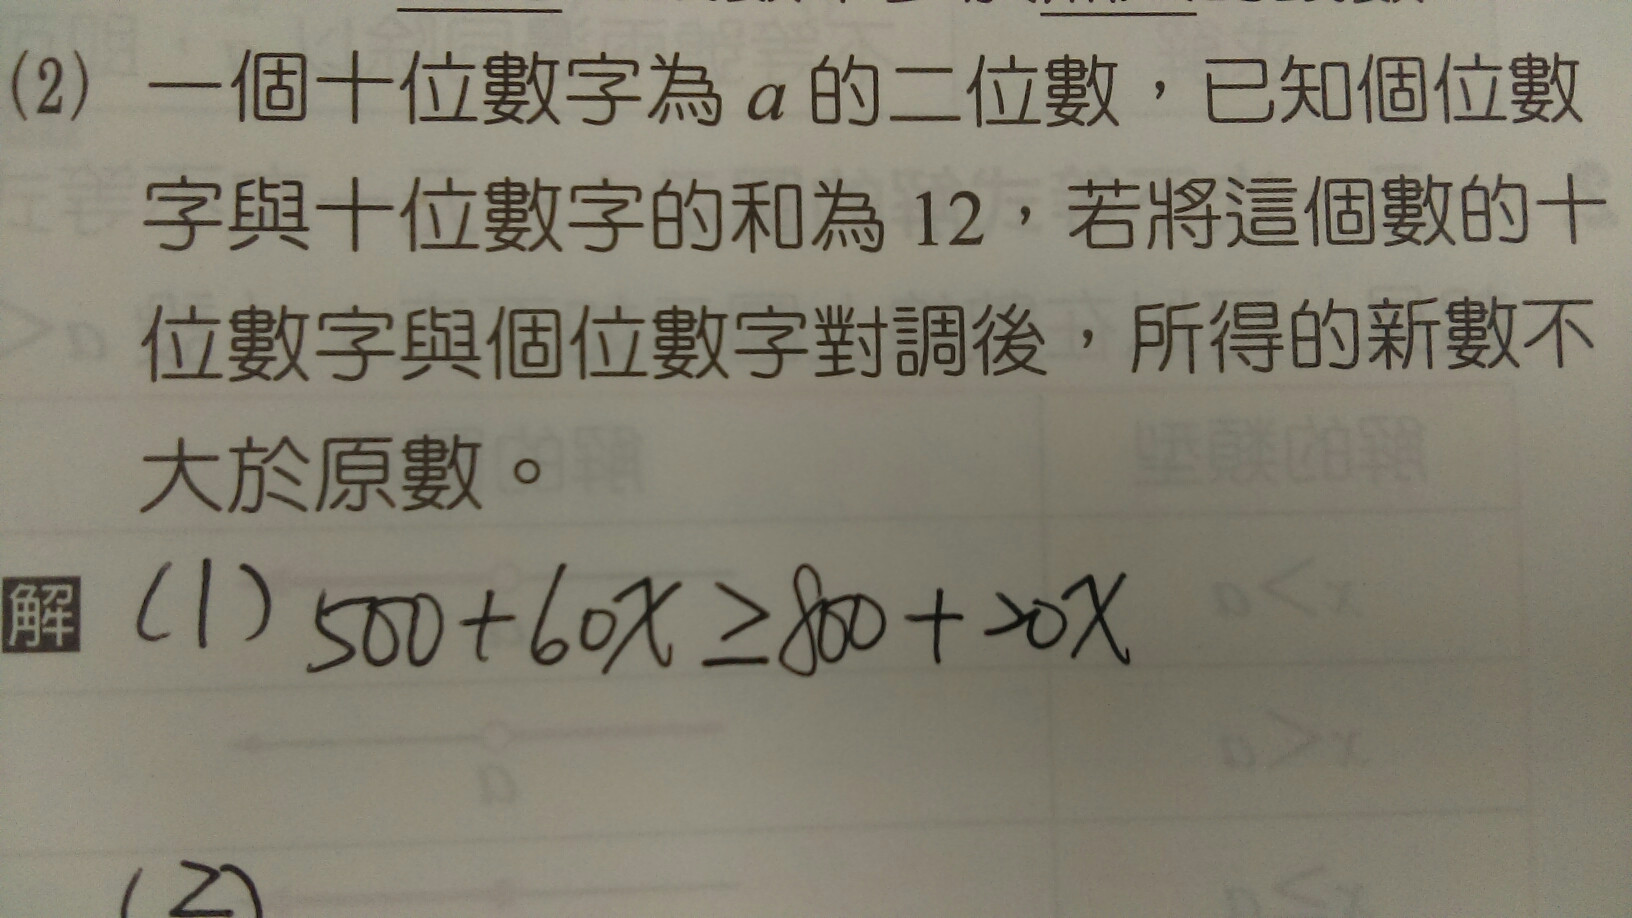 (2) 一個十位數字為 a 的二位數，已知個位數
字與十位數字的和為 12，若將這個數的十
位數字與個位數字對調後，所得的新數不
大於原數。
解 (1) 500+60x≥800+20x
(2)